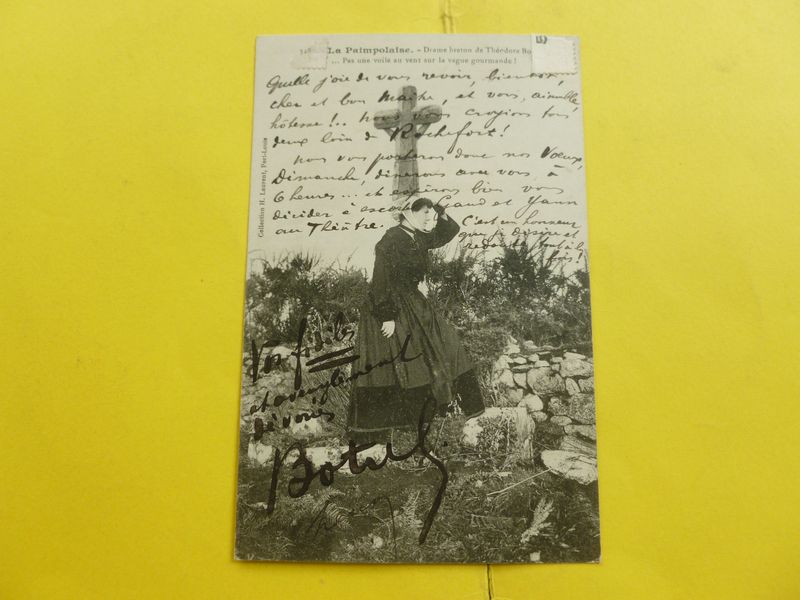 La Paimpolaise. - Drame breton de Théodore Bo
... Pas une voile au vent sur la vague gourmande !
Quelle joie de vous revoir, bientôt,
cher et bon Maître, et vous, aimable
hôtesse !.. Nous vous croyions tous
deux loin de Rochefort !
Nous vous porterons donc nos Vœux,
Dimanche, dînerons avec vous, à
6 heures... et espérons bien vous
décider à Gaud et Yann
au Théâtre.
C'est un honneur
que je désire et
redoute tout à la
fois !
Collection H. Laurent, Port-Louis
Vos fidèles
et aveuglément
dévoués
Botrel